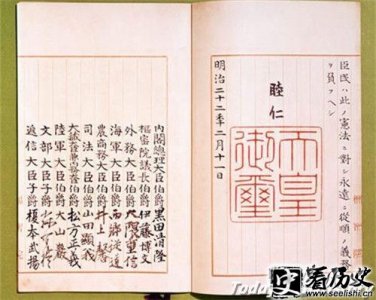 臣民ハ此ノ憲法ニ對シ永遠ニ從順ノ義務
ヲ負フヘシ
睦仁
天皇御璽
明治二十二年二月十一日
內閣總理大臣伯爵黑田清隆
樞密院議長伯爵伊藤博文
外務大臣伯爵大隈重信
海軍大臣伯爵西鄕從道
農商務大臣伯爵井上馨
司法大臣伯爵山田顯義
大藏大臣兼內務大臣伯爵松方正義
陸軍大臣伯爵大山巖
文部大臣子爵森有禮
遞信大臣子爵榎本武揚
看历史
www.seelishi.cn